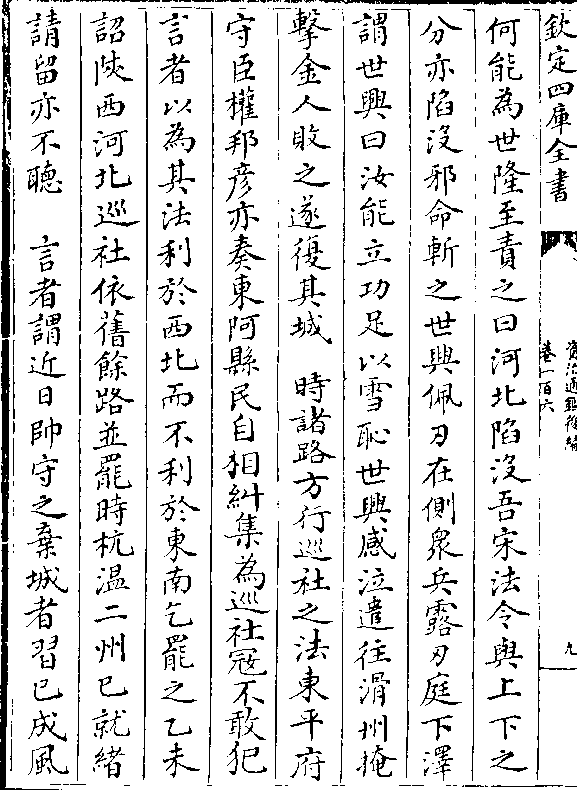 欽定四庫全書
資治通鑑後編
卷一百六
九
何能為世隆至責之曰河北陷沒吾宋法令與上下之
分亦陷沒邪命斬之世興佩刃在側眾兵露刃庭下澤
謂世興曰汝能立功足以雪恥世興感泣遣往滑州掩
擊金人敗之遂復其城　時諸路方行巡社之法東平府
守臣權邦彥亦奏東阿縣民自相糾集為巡社冦不敢犯
言者以為其法利於西北而不利於東南乞罷之乙未
詔陝西河北巡社依舊餘路並罷時杭温二州已就緒
請留亦不聽　言者謂近日帥守之棄城者習已成風